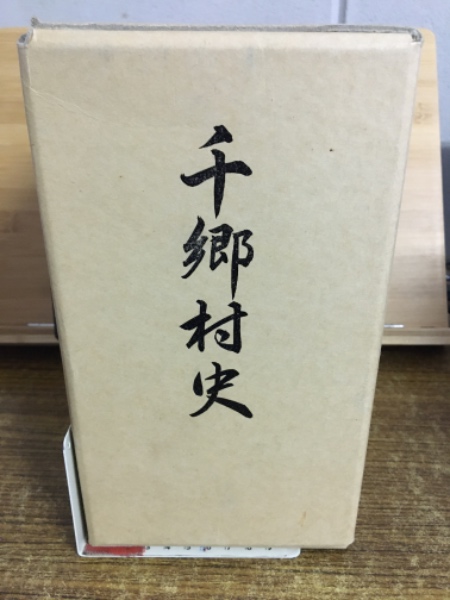 千郷村史